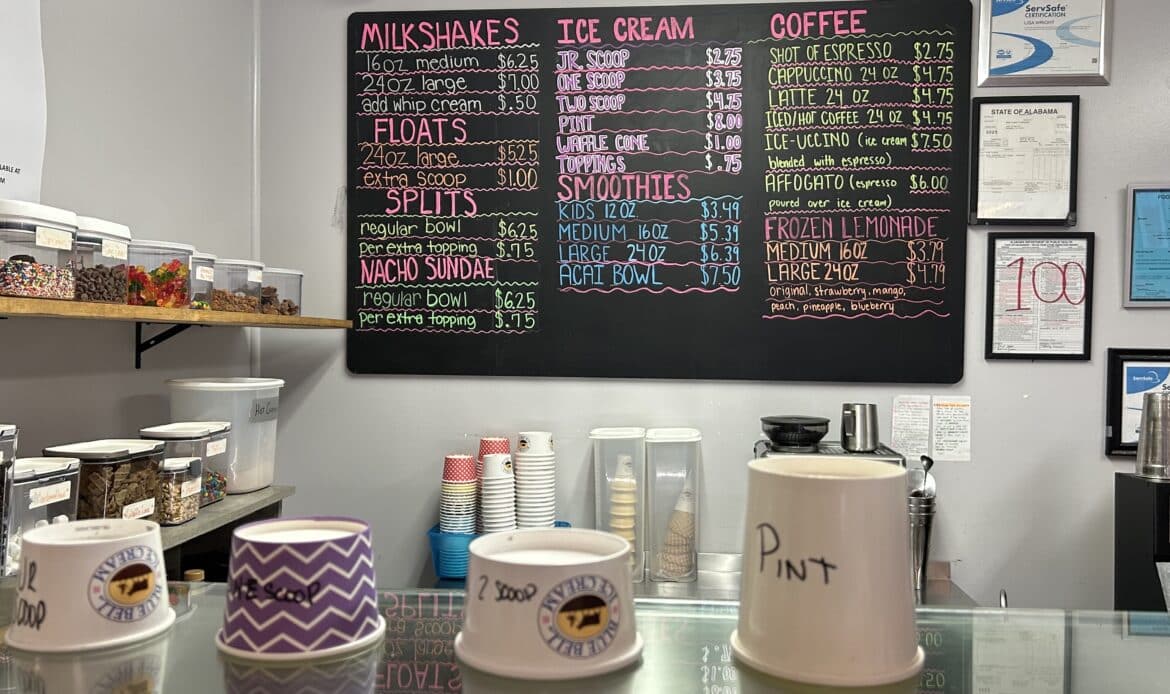 MILKSHAKES
16oz medium $6.25
24oz large $7.00
add whip cream $.50
FLOATS
24oz large $5.25
extra scoop $1.00
SPLITS
regular bowl $6.25
per extra topping $.75
NACHO SUNDAE
regular bowl $6.25
per extra topping $.75
ICE CREAM
JR SCOOP $2.75
ONE SCOOP $3.75
TWO SCOOP $4.75
PINT $8.00
WAFFLE CONE $1.00
TOPPINGS $.75
SMOOTHIES
KIDS 12 OZ $3.49
MEDIUM 16OZ $5.39
LARGE 24OZ $6.39
ACAI BOWL $7.50
COFFEE
SHOT OF ESPRESSO $2.75
CAPPUCCINO 24 OZ $4.75
LATTE 24 OZ $4.75
ICED/HOT COFFEE 24 OZ $4.75
ICE-UCCINO (ice cream $7.50
blended with espresso)
AFFOGATO (espresso $6.00
poured over ice cream)
FROZEN LEMONADE
MEDIUM 16OZ $3.79
LARGE 24OZ $4.79
original, strawberry, mango,
peach, pineapple, blueberry
ServSafe
CERTIFICATION
LISA WRIGHT
STATE OF ALABAMA
100
ServSafe
JR
SCOOP
BLUE BELL
ICE CREAM
SCOOP
2 SCOOP
BLUE BELL
ICE CREAM
PINT